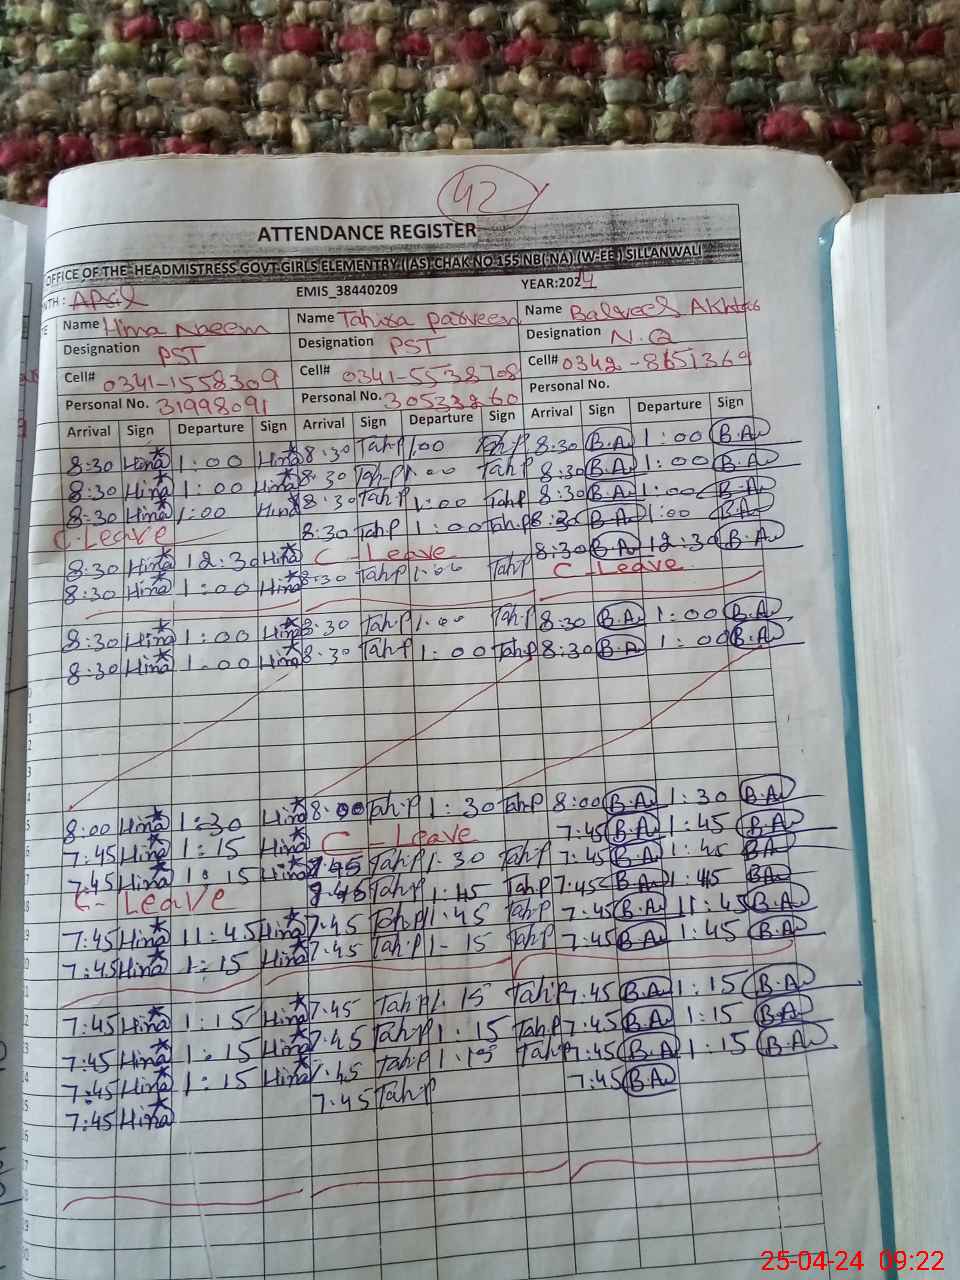 42
ATTENDANCE REGISTER
OFFICE OF THE HEADMISTRESS GOVT GIRLS ELEMENTRY (IAS) CHAK NO 155 NB( NA) (W-EE ) SILLANWALI
NTH : April EMIS_38440209 YEAR:2024
Name Hina Naeem Name Tahira Parveen Name Balqees Akhtar
Designation PST Designation PST Designation N.Q
Cell# 0341-1558309 Cell# 0341-5538708 Cell# 0342-8651369
Personal No. 31998091 Personal No. 30533260 Personal No.
Arrival Sign Departure Sign Arrival Sign Departure Sign Arrival Sign Departure Sign
8:30 Hina 1:00 Hina 8:30 Tah.P 1:00 Tah.P 8:30 B.A 1:00 B.A
8:30 Hina 1:00 Hina 8:30 Tah.P 1:00 Tah.P 8:30 B.A 1:00 B.A
8:30 Hina 1:00 Hina 8:30 Tah.P 1:00 Tah.P 8:30 B.A 1:00 B.A
C-Leave 8:30 Tah.P 1:00 Tah.P 8:30 B.A 1:00 B.A
8:30 Hina 12:30 Hina C-Leave 8:30 B.A 12:30 B.A
8:30 Hina 1:00 Hina 8:30 Tah.P 1:00 Tah.P C-Leave
8:30 Hina 1:00 Hina 8:30 Tah.P 1:00 Tah.P 8:30 B.A 1:00 B.A
8:30 Hina 1:00 Hina 8:30 Tah.P 1:00 Tah.P 8:30 B.A 1:00 B.A
8:00 Hina 1:30 Hina 8:00 Tah.P 1:30 Tah.P 8:00 B.A 1:30 B.A
7:45 Hina 1:15 Hina C-Leave 7:45 B.A 1:45 B.A
7:45 Hina 1:15 Hina 7:45 Tah.P 1:30 Tah.P 7:45 B.A 1:45 B.A
C-Leave 7:45 Tah.P 1:45 Tah.P 7:45 B.A 1:45 B.A
7:45 Hina 11:45 Hina 7:45 Tah.P 11:45 Tah.P 7:45 B.A 11:45 B.A
7:45 Hina 1:15 Hina 7:45 Tah.P 1:15 Tah.P 7:45 B.A 1:45 B.A
7:45 Hina 1:15 Hina 7:45 Tah.P 1:15 Tah.P 7:45 B.A 1:15 B.A
7:45 Hina 1:15 Hina 7:45 Tah.P 1:15 Tah.P 7:45 B.A 1:15 B.A
7:45 Hina 1:15 Hina 7:45 Tah.P 1:15 Tah.P 7:45 B.A 1:15 B.A
7:45 Hina 7:45 Tah.P 7:45 B.A
25-04-24 09:22